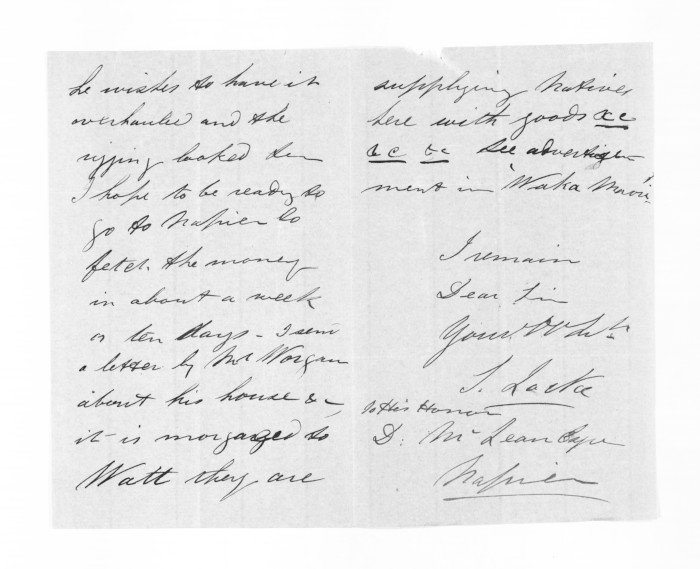 he wishes to have it
overhauled and the
rigging looked
I hope to be ready to
go to Napier to
fetch the money
in about a week
or ten days - I sent
a letter by Mr Worgan
about his house &c,
it is morgaged to
Watt they are
supplying Natives
here with goods &c
&c &c See advertise-
ment in "Waka Maori"
I remain
Dear Sir
Your
S. Locke
To His Honor
D: McLean Esqre
Napier